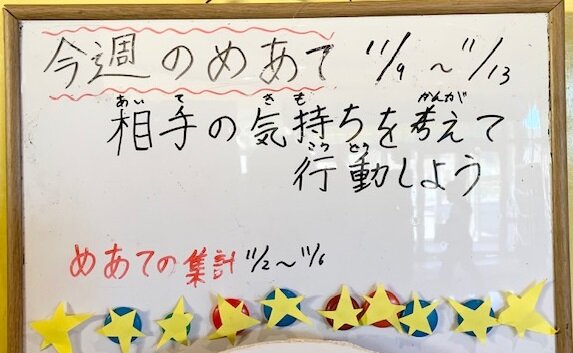 今週のめあて 11/9〜11/13
あいて きも かんが
相手の気持ちを考えて
こうどう
行動しよう
めあての集計 11/2〜11/6